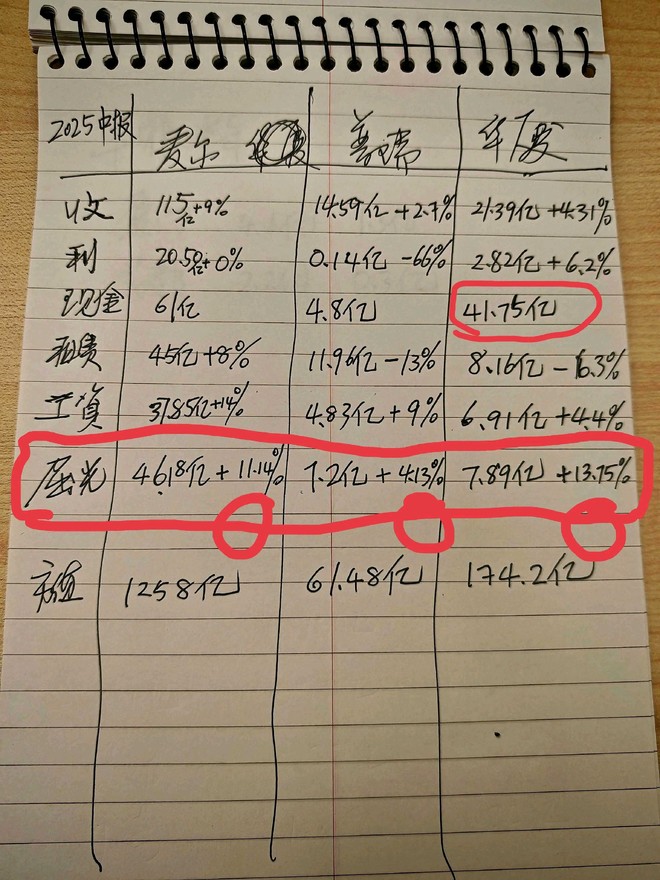 2025中报 爱尔 普瑞 华厦
收 115亿+9% 14.59亿+2.7% 21.39亿+4.31%
利 20.5亿+0% 0.14亿 -66% 2.82亿+6.2%
现金 61亿 4.8亿 41.75亿
租赁 45亿+8% 11.96亿-13% 8.16亿-16.3%
工资 37.85亿+14% 4.83亿+9% 6.91亿+4.4%
屈光 46.18亿+11.14% 7.2亿+4.13% 7.89亿+13.75%
市值 1258亿 61.48亿 174.2亿